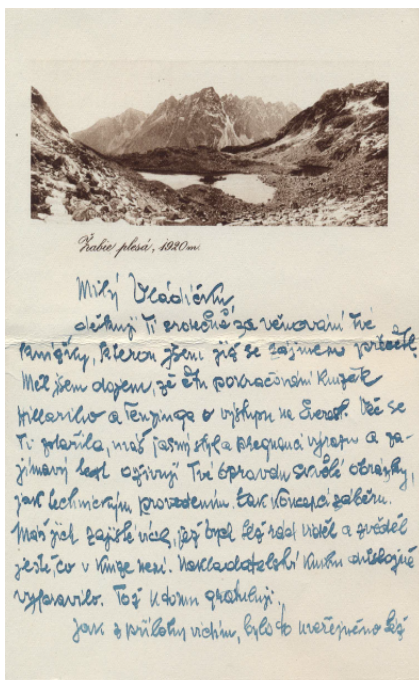 Žabie plesá, 1920 m.
Milý Vládíčku,
děkuji Ti srdečně za věnování Tvé
knížky, kterou jsem již se zájmem přečetl.
Měl jsem dojem, že čtu pokračování knížek
Hillaryho a Tenzinga o výstupu na Everest. Věc se
Ti zdařila, máš jasný styl a pregnanci výrazu a za-
jímavý text oživují Tvé opravdu skvělé obrázky,
jak technickým provedením, tak koncepcí záběru.
Máš jich zajisté více, jež bych též rád viděl a zvěděl
ještě, co v knize není. Nakladatelství knihu důstojně
vypravilo. Tož k dílu gratuluji.
Jak z přílohy vidím, bylo to uveřejněno též